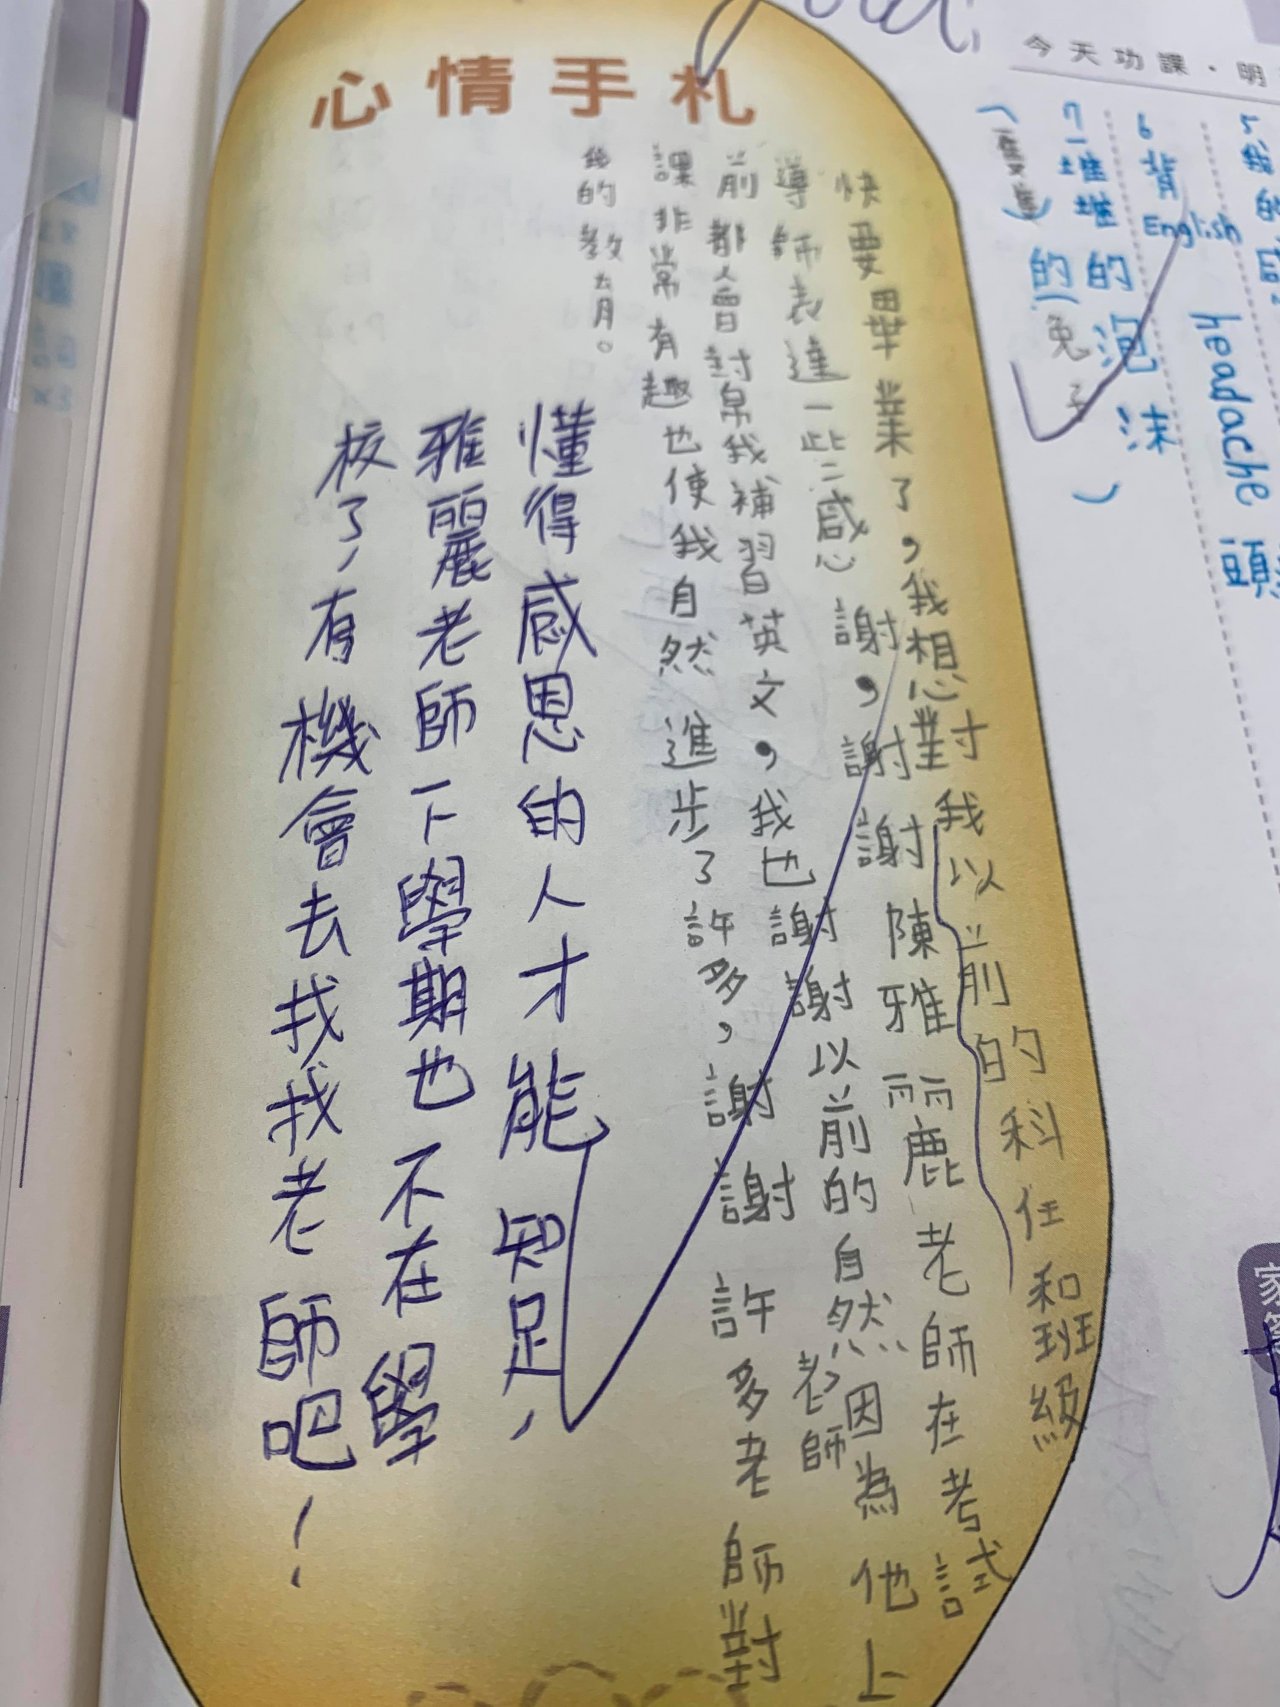 心情手札
今天功課．明
headache 頭
6 背English
7 一堆堆的泡沫
的(兔子)
快要畢業了，我想對我以前的科任和班級
導師表達一些感謝，謝謝陳雅麗老師在考試
前都會幫我補習英文，我也謝謝以前的自然老師因為他上
課非常有趣也使我自然進步了許多，謝謝許多老師對
的教。
懂得感恩的人才能知足，
雅麗老師下學期也不在學
校了，有機會去找找老師吧！
家